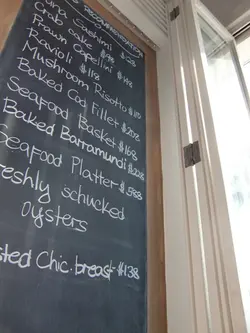 RECOMMENDATION
Sashimi $168
Crab cake
Prawn Capellini $148
Ravioli $118
Mushroom Risotto
Baked Cod Fillet $208
Seafood Basket $168
Baked Barramundi $208
Seafood Platter $568
reshly schucked
oysters
sted Chic. breast $138